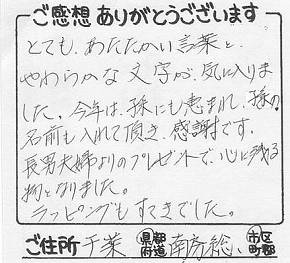 ご感想 ありがとうございます
とても、あたたかい言葉と、
やわらかな文字が、気に入りま
した。今年は、孫にも恵まれ、孫の
名前も入れて頂き、感謝です。
長男夫婦よりのプレゼントで、心に残る
物となりました。
ラッピングもすてきでした。
ご住所 千葉 都道府県 南房総 市区町郡